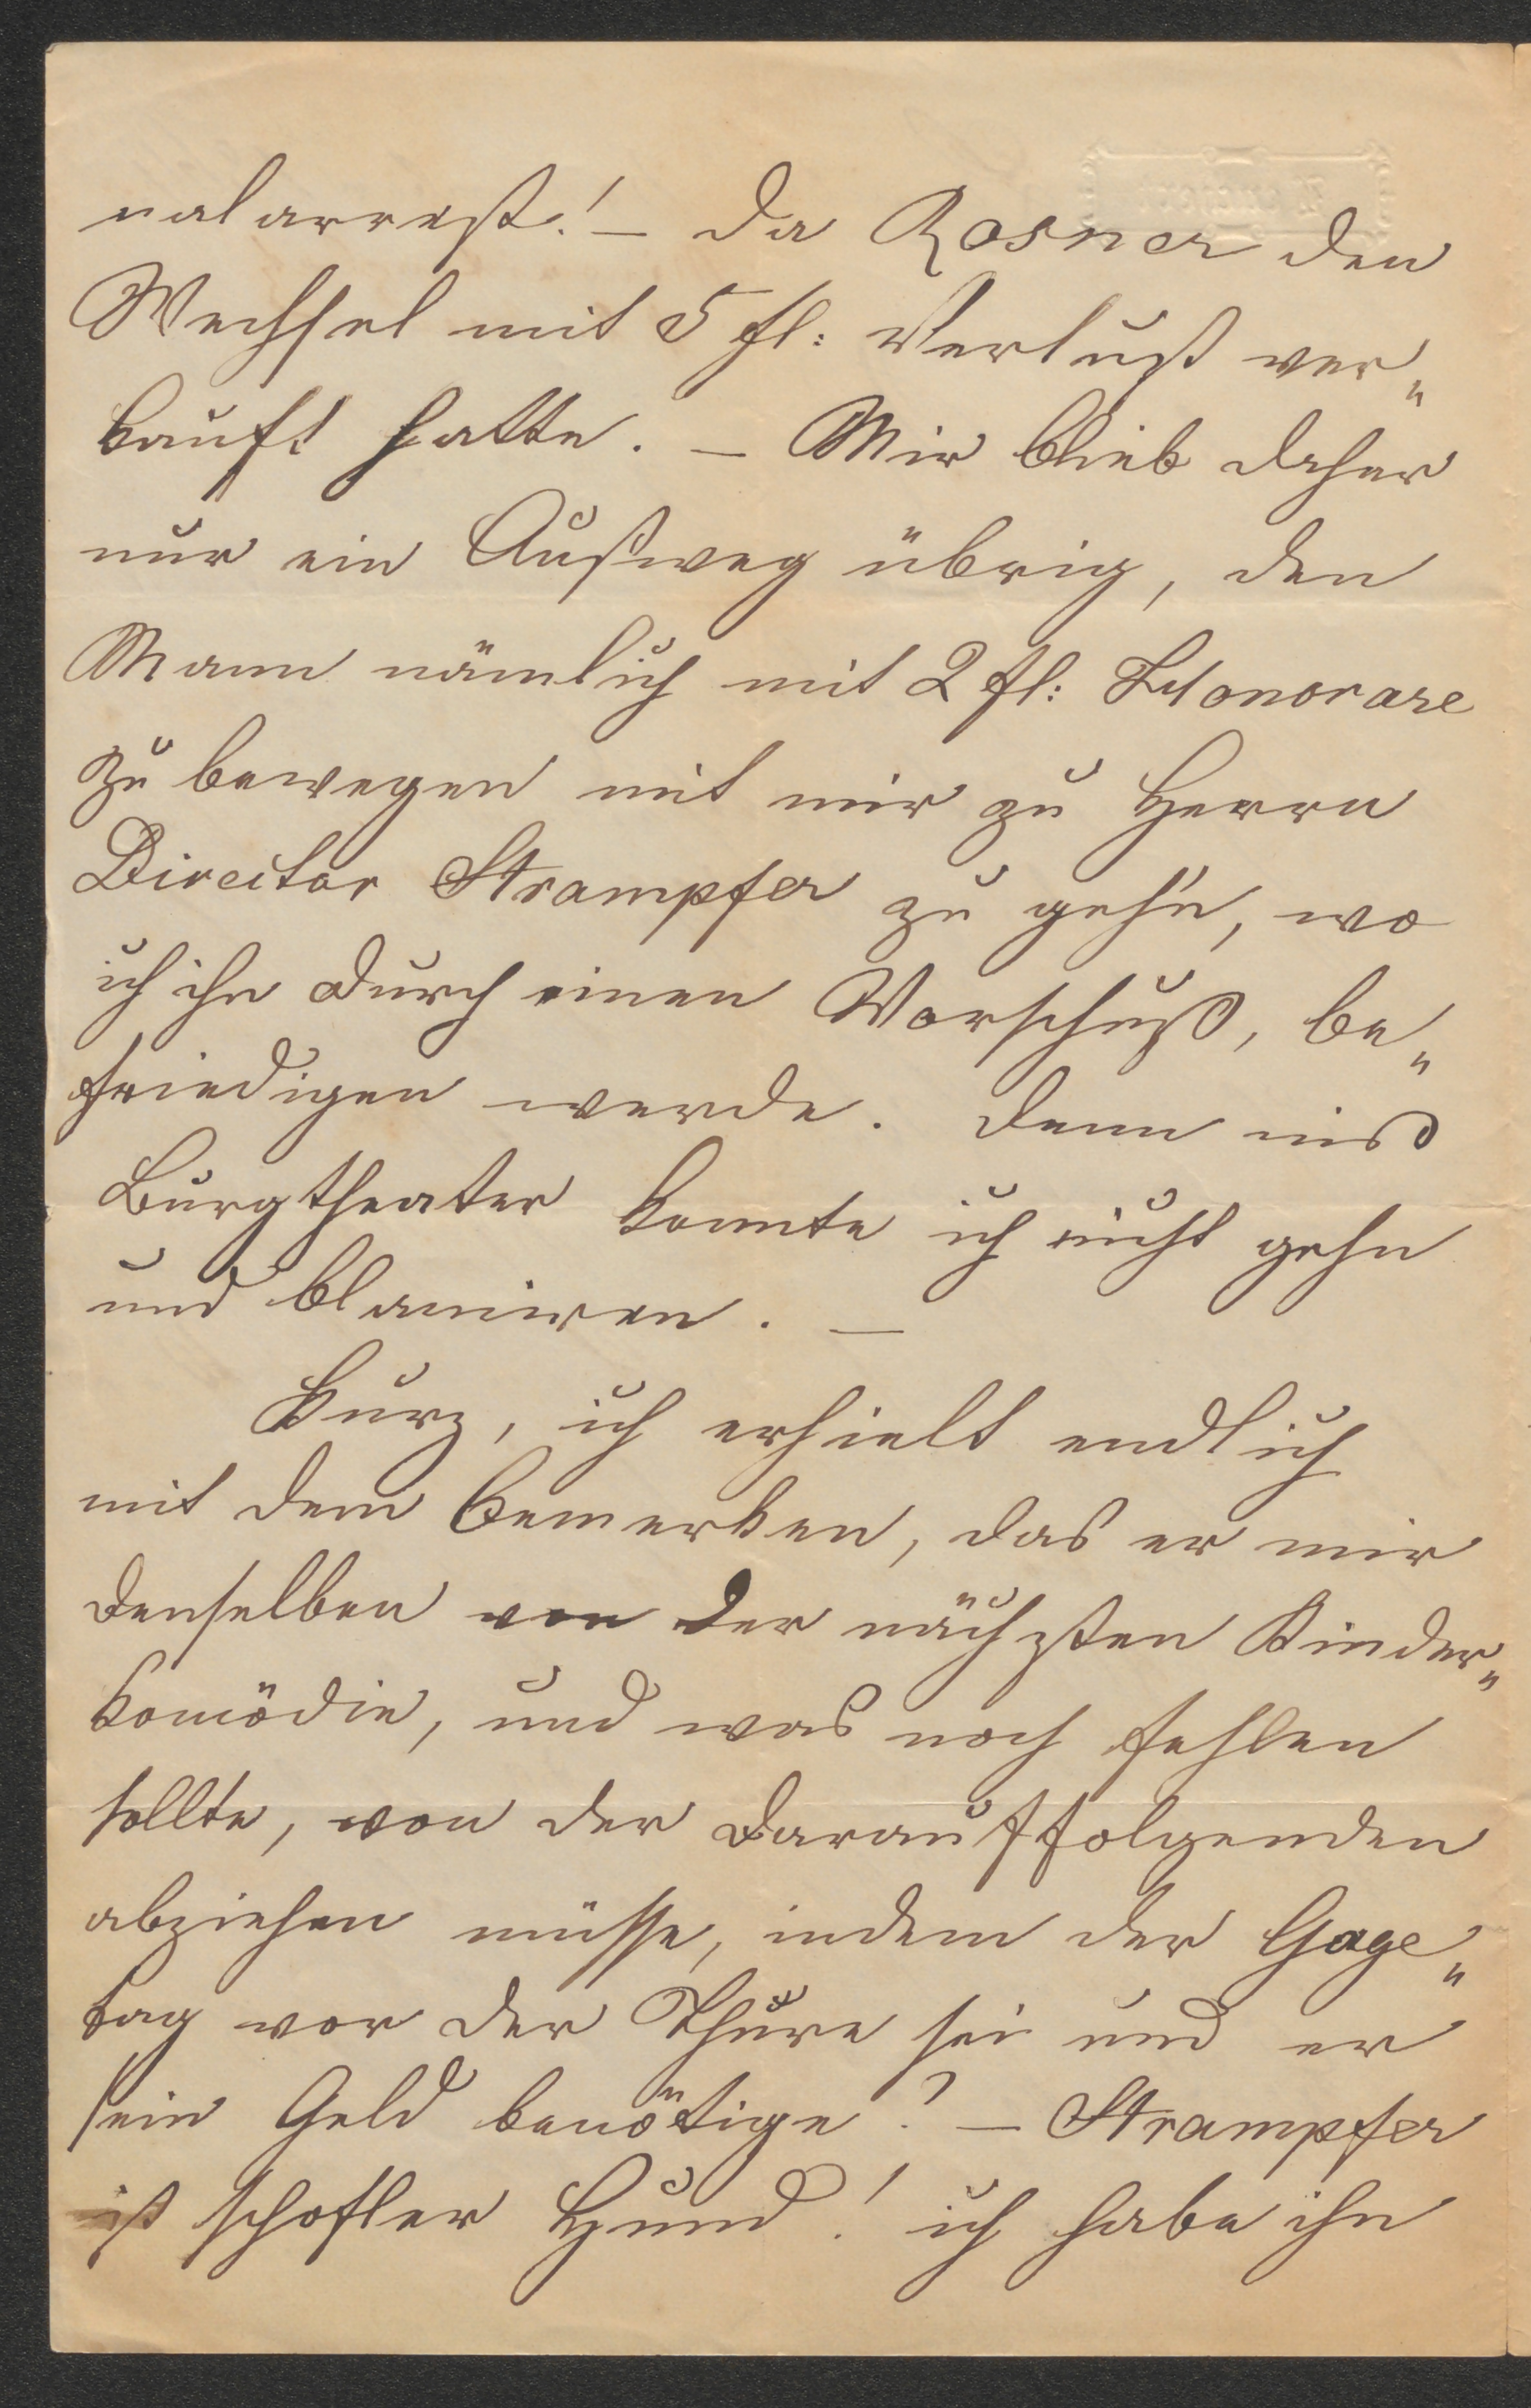 nalarrest! – da Rosner den
Wechsel mit 5 fl: Verlust ver„
kauft hatte. – Mir blieb daher
nur ein Außweg übrig, den
Mann nämlich mit 2 fl: Honorare
zu bewegen mit mir zu Herrn
Director Strampfer zu geh'n, wo
ich ihn durch einen Vorschuß, be„
friedigen werde. Denn ins
Burgtheater konnte ich nicht gehn
und blamiren. –
Kurz, ich erhielt endlich
mit dem Bemerken, das er mir
denselben von der nächsten Kinder„
komödie, und was noch fehlen
sollte, von der darauffolgenden
abziehen müsse, indem der Gage„
tag vor der Thüre sei und er
sein Geld benötige? – Strampfer
ist schofler Hund! ich habe ihn